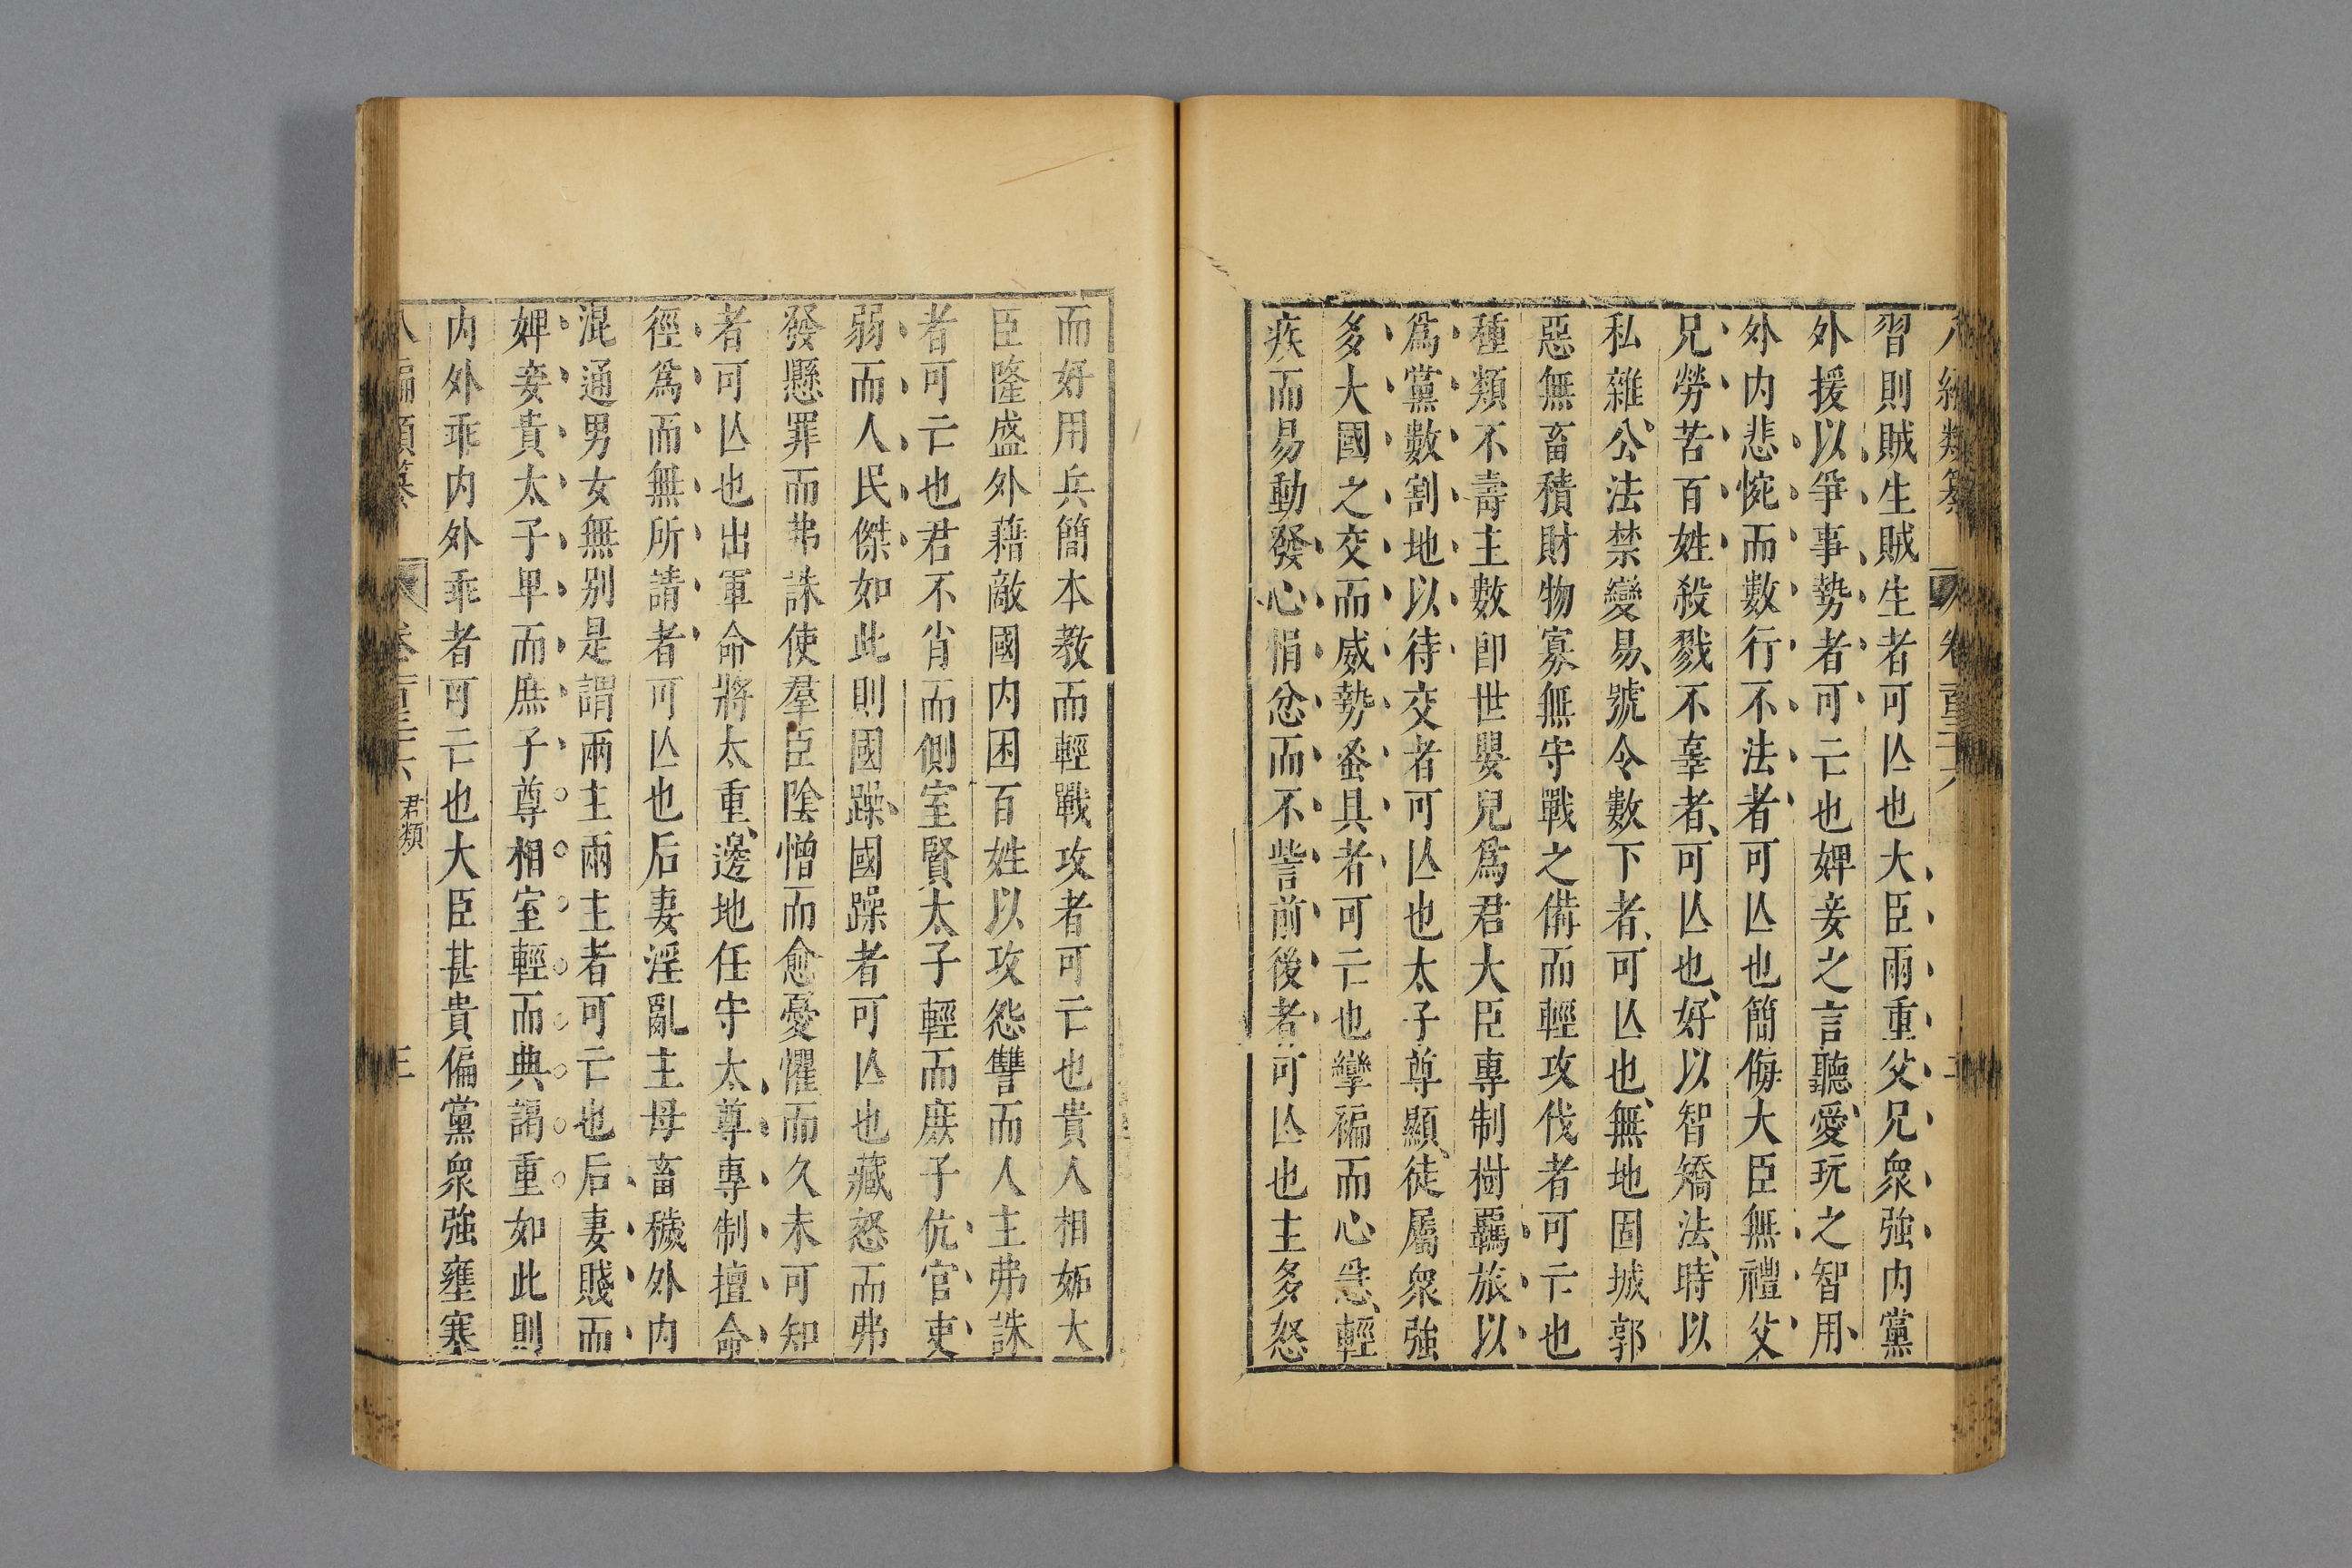 習則賊生賊生者可亾也大臣兩重父兄衆強内黨
外援以爭事勢者可亡也婢妾之言聽愛玩之智用
外内悲惋而數行不法者可亾也簡侮大臣無禮父
兄勞苦百姓殺戮不辜者可亾也好以智矯法時以
私雜公法禁變易號令數下者可亾也無地固城郭
惡無畜積財物寡無守戰之備而輕攻伐者可亡也
種類不壽主數卽世嬰兒爲君大臣專制樹羈旅以
爲黨數割地以待交者可亾也太子尊顯徒屬衆強
多大國之交而威勢蚤具者可亡也攣褊而心急輕
疾而易動發心悁忿而不訾前後者可亾也主多怒
而好用兵簡本教而輕戰攻者可亡也貴人相妬大
臣隆盛外藉敵國内困百姓以攻怨讐而人主弗誅
者可亡也君不肖而側室賢太子輕而庶子伉官吏
弱而人民傑如此則國躁國躁者可亾也藏怒而弗
發懸罪而弗誅使羣臣陰憎而愈憂懼而久未可知
者可亾也出軍命將太重邊地任守太尊專制擅命
徑爲而無所請者可亾也后妻淫亂主母畜穢外内
混通男女無别是謂兩主兩主者可亡也后妻賤而
婢妾貴太子卑而庶子尊相室輕而典謁重如此則
内外乖内外乖者可亡也大臣甚貴偏黨衆強壅塞
君類
三